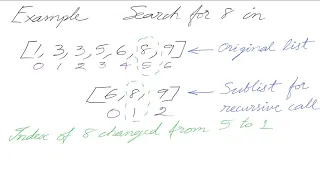 Example Search for 8 in
[1, 3, 3, 5, 6, 8, 9] ← Original list
0 1 2 3 4 5 6
[6, 8, 9] ← Sublist for
0 1 2 recursive call
Index of 8 changed from 5 to 1